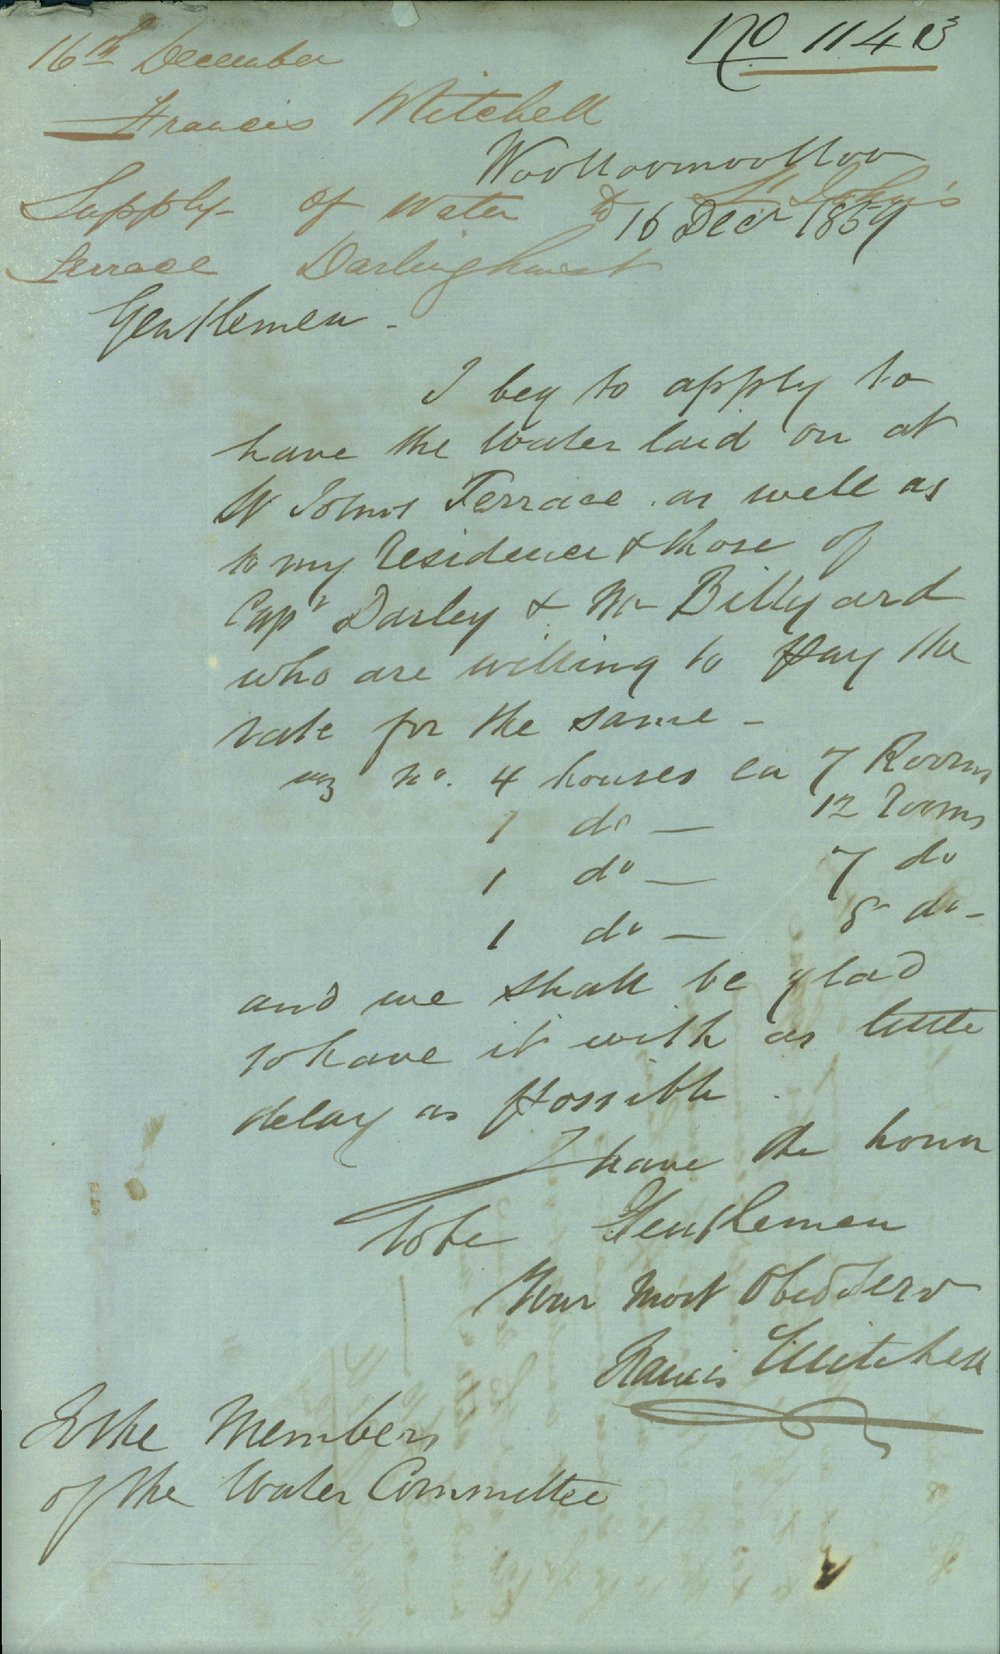 No 1143
16th December
Francis Mitchell
Woolloomoolloo
Supply of Water to St John's
16 Decr 1859
Terrace Darlinghurst
Gentlemen -
I beg to apply to
have the Water laid on at
St Johns Terrace as well as
to my Residence & those of
Capt Darley & Mr Billyard
who are willing to pay the
rate for the same -
viz No. 4 houses ea 7 Rooms
1 do — 12 Rooms
1 do — 7 do
1 do — 8 do -
and we shall be glad
to have it with as little
delay as possible.
I have the honor
to be Gentlemen
Your Most Obed Serv
Francis Mitchell
To the Members
of the Water Committee